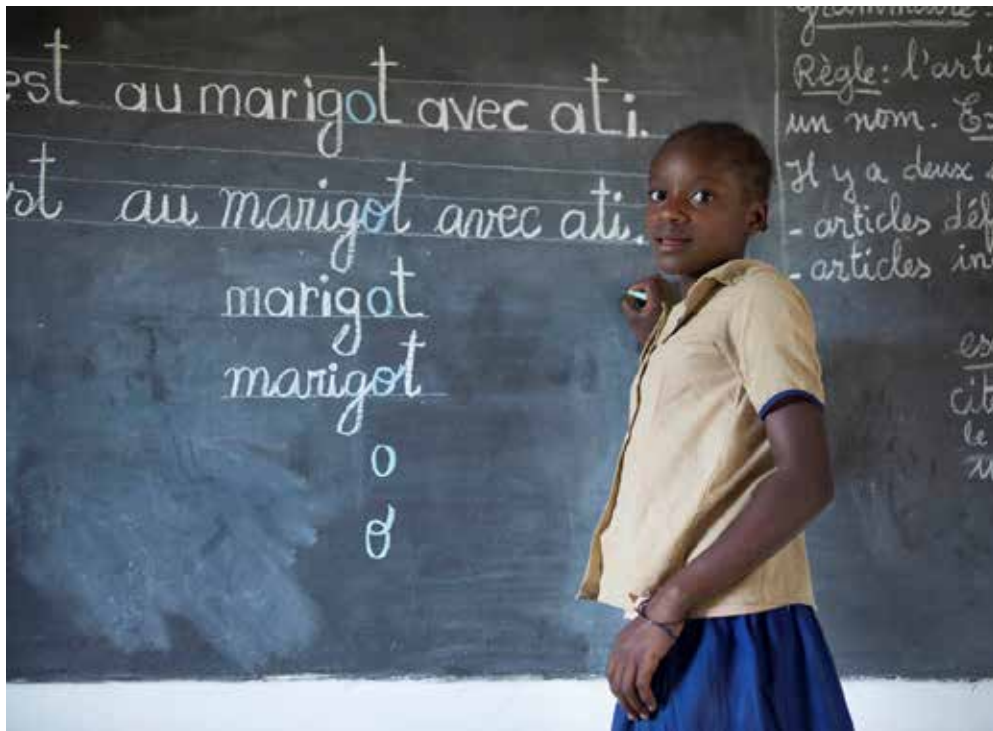 est au marigot avec ati.
st au marigot avec ati.
marigot
marigot
o
o
grammaire.
Règle: l'arti
un nom. Ex
Il y a deux
- articles déf
- articles in
es
cit
le